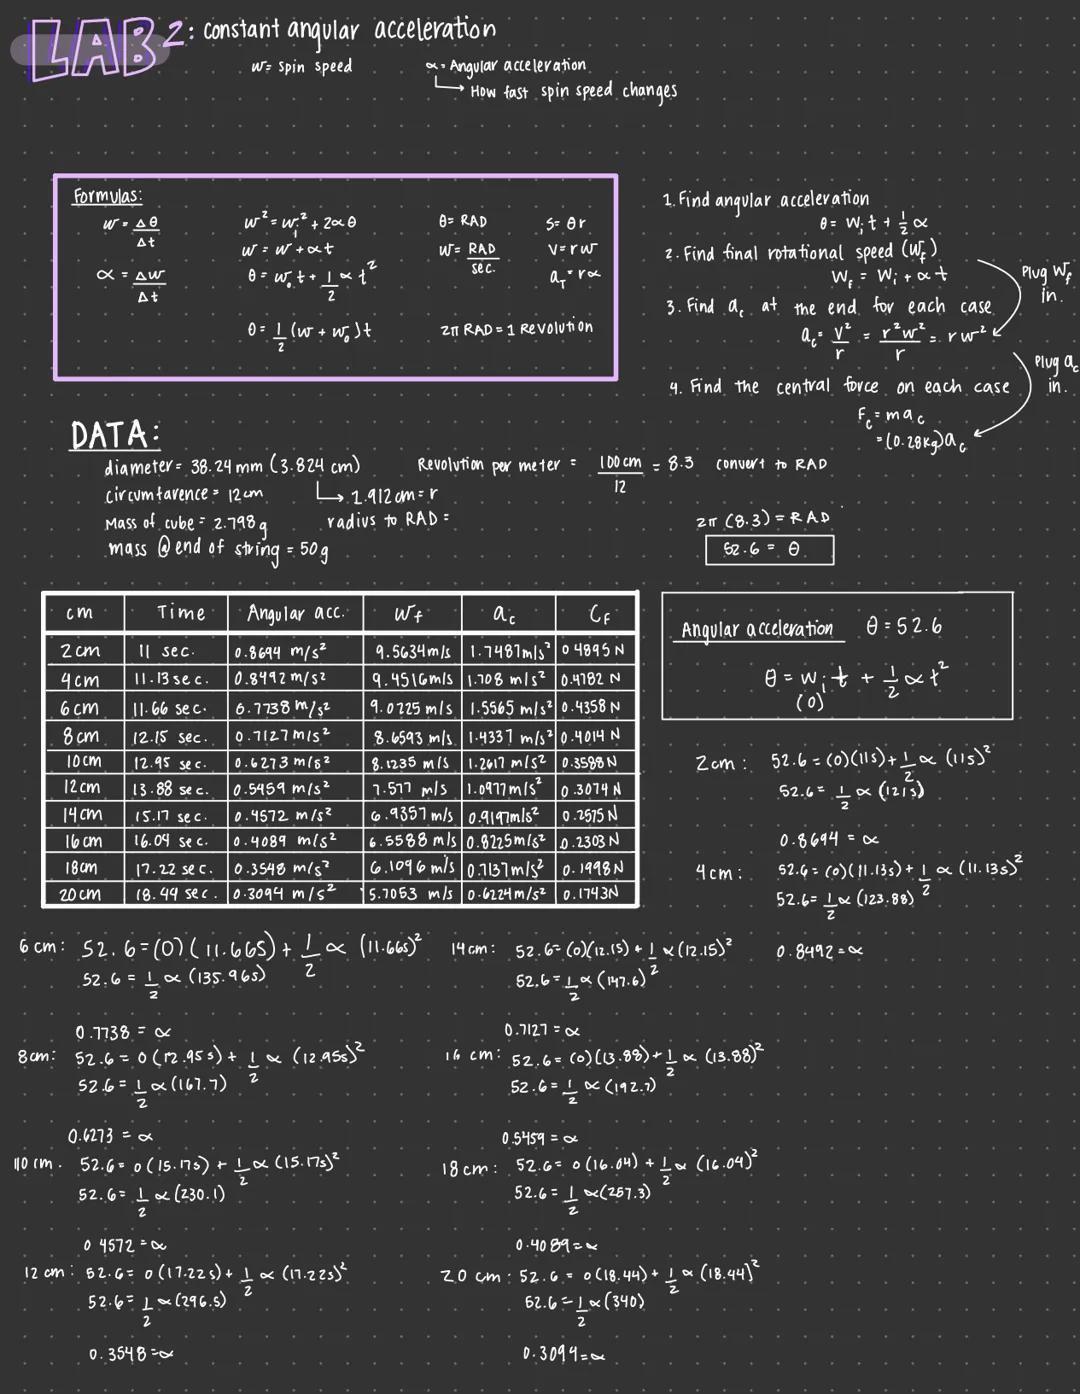 LAB 2: constant angular acceleration
w = spin speed
α = Angular acceleration
↳ How fast spin speed changes
Formulas:
w = Δθ/Δt
α = Δw/Δt
w² = wᵢ² + 2αθ
w = w + αt
θ = w₀t + 1/2 αt²
θ = 1/2 (w + w₀)t
θ = RAD
w = RAD/sec.
2π RAD = 1 Revolution
s = θr
v = rw
a_T = rα
1. Find angular acceleration
θ = wᵢt + 1/2 α
2. Find final rotational speed (w_f)
w_f = wᵢ + αt
Plug w_f in.
3. Find a_c at the end for each case
a_c = v²/r = r²w²/r = rw²
Plug a_c in.
4. Find the central force on each case
F_c = ma_c
= (0.28kg)a_c
DATA:
diameter = 38.24 mm (3.824 cm)
↳ 1.912 cm = r
circumfarence = 12 cm
Mass of cube = 2.798 g
radius to RAD =
mass @ end of string = 50 g
Revolution per meter = 100 cm/12 = 8.3 convert to RAD
2π (8.3) = RAD
52.6 = θ
cm Time Angular acc. w_f a_c C_F
2 cm 11 sec. 0.8694 m/s² 9.5634 m/s 1.7487 m/s² 0.4895 N
4 cm 11.13 sec. 0.8492 m/s² 9.4516 m/s 1.708 m/s² 0.4782 N
6 cm 11.66 sec. 0.7738 m/s² 9.0225 m/s 1.5565 m/s² 0.4358 N
8 cm 12.15 sec. 0.7127 m/s² 8.6593 m/s 1.4337 m/s² 0.4014 N
10 cm 12.95 sec. 0.6273 m/s² 8.1235 m/s 1.2617 m/s² 0.3588 N
12 cm 13.88 sec. 0.5459 m/s² 7.577 m/s 1.0977 m/s² 0.3074 N
14 cm 15.17 sec. 0.4572 m/s² 6.9357 m/s 0.9197 m/s² 0.2575 N
16 cm 16.04 sec. 0.4089 m/s² 6.5588 m/s 0.8225 m/s² 0.2303 N
18 cm 17.22 sec. 0.3548 m/s² 6.1096 m/s 0.7137 m/s² 0.1998 N
20 cm 18.44 sec. 0.3094 m/s² 5.7053 m/s 0.6224 m/s² 0.1743 N
Angular acceleration θ = 52.6
θ = wᵢt + 1/2 αt²
(0)
2 cm: 52.6 = (0)(11s) + 1/2 α (11s)²
52.6 = 1/2 α (121s)
0.8694 = α
4 cm: 52.6 = (0)(11.13s) + 1/2 α (11.13s)²
52.6 = 1/2 α (123.88)
0.8492 = α
6 cm: 52.6 = (0)(11.66s) + 1/2 α (11.66s)²
52.6 = 1/2 α (135.96s)
0.7738 = α
8 cm: 52.6 = 0(12.95s) + 1/2 α (12.95s)²
52.6 = 1/2 α (167.7)
0.6273 = α
10 cm. 52.6 = 0(15.17s) + 1/2 α (15.17s)²
52.6 = 1/2 α (230.1)
0.4572 = α
12 cm: 52.6 = 0(17.22s) + 1/2 α (17.22s)²
52.6 = 1/2 α (296.5)
0.3548 = α
14 cm: 52.6 = (0)(12.15) + 1/2 α (12.15)²
52.6 = 1/2 α (147.6)
0.7127 = α
16 cm: 52.6 = (0)(13.88) + 1/2 α (13.88)²
52.6 = 1/2 α (192.7)
0.5459 = α
18 cm: 52.6 = 0(16.04) + 1/2 α (16.04)²
52.6 = 1/2 α (257.3)
0.4089 = α
20 cm: 52.6 = 0(18.44) + 1/2 α (18.44)²
52.6 = 1/2 α (340)
0.3094 = α